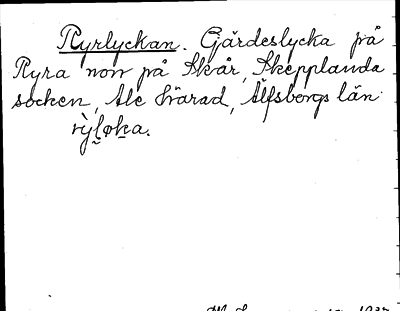 Ryrlyckan. Gärdeslycka på
Ryra norr på Skår, Skepplanda
socken, Ale härad, Älfsborgs län.